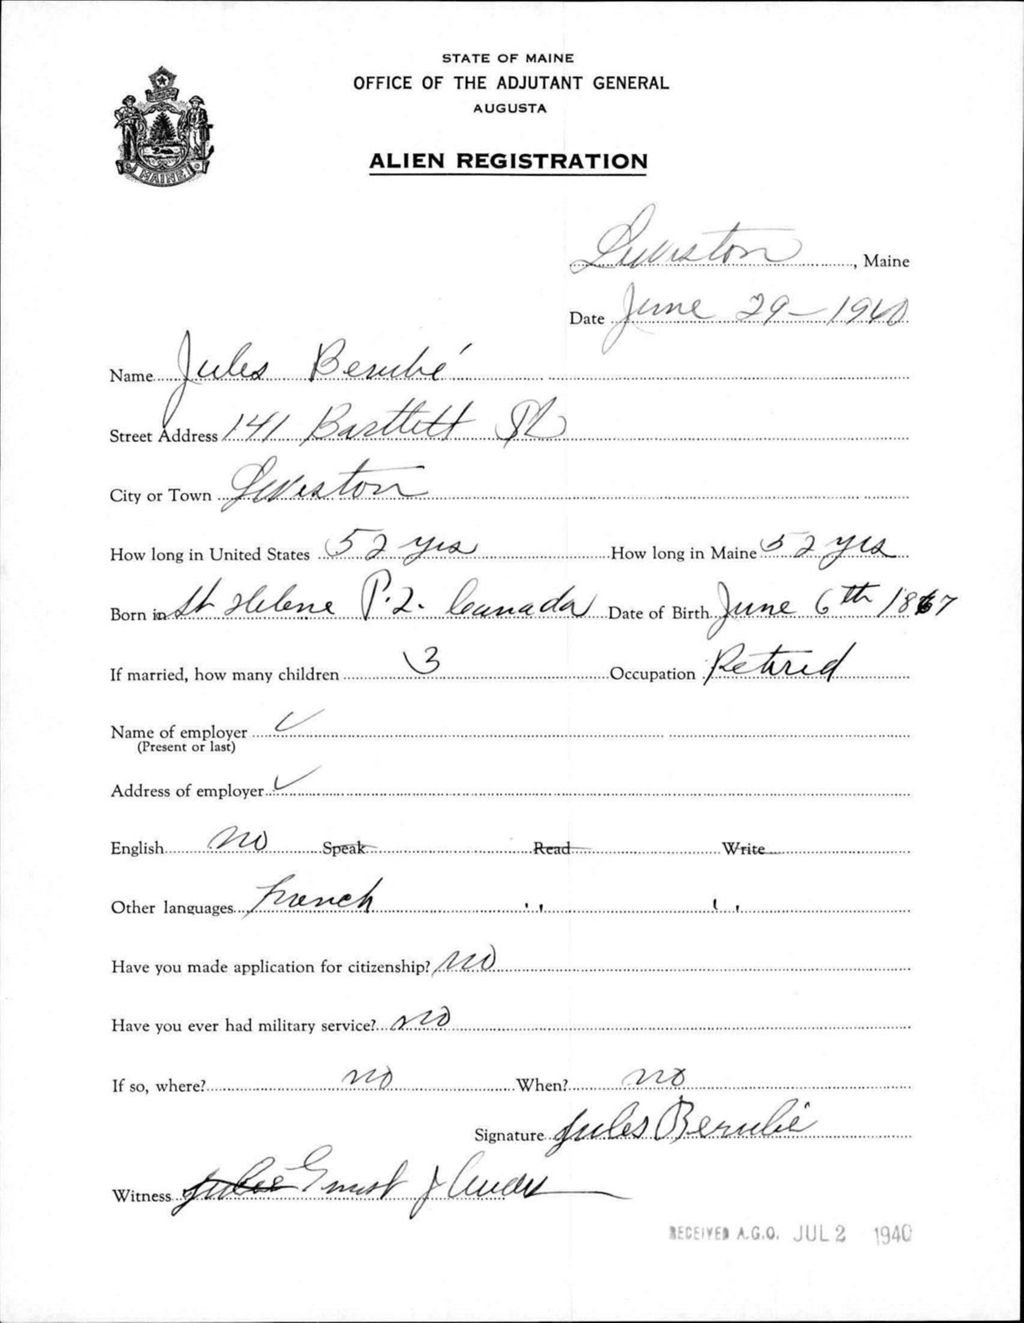 STATE OF MAINE
OFFICE OF THE ADJUTANT GENERAL
AUGUSTA
MAINE
ALIEN REGISTRATION
Lewiston, Maine
Date June 29-1940
Name Jules Berubé
Street Address 141 Bartlett St
City or Town Lewiston
How long in United States 52 yrs How long in Maine 52 yrs
Born in St Helene P.Q. Canada Date of Birth June 6th 1867
If married, how many children 3 Occupation Retired
Name of employer ✓
(Present or last)
Address of employer ✓
English No Speak Read Write
Other languages French " "
Have you made application for citizenship? No
Have you ever had military service? No
If so, where? no When? no
Signature Jules Berubé
Witness Jules Ernest J
RECEIVED A.G.O. JUL 2 1940